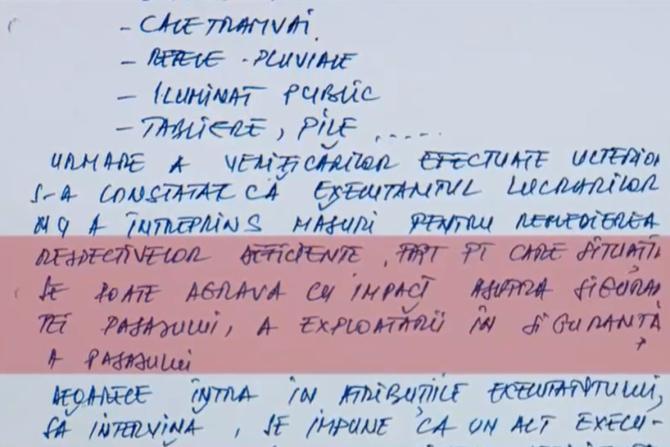 - CALE TRAMVAI.
- REȚELE - PLUVIALE
- ILUMINAT PUBLIC
- TABLIERE, PILE ,.....
URMARE A VERIFICĂRILOR EFECTUATE ULTERIOR
S-A CONSTATAT CĂ EXECUTANTUL LUCRARILOR
NU A ÎNTREPRINS MĂSURI PENTRU REMEDIEREA
RESPECTIVELOR DEFICIENTE, FAPT PT CARE SITUATIA
SE POATE AGRAVA CU IMPACT ASUPRA SIGURAN
TEI PASAJULUI, A EXPLOATĂRII ÎN SIGURANȚĂ
A PASAJULUI
DEOARECE INTRA IN ATRIBUȚIILE EXECUTANTULUI,
SĂ INTERVINĂ, SE IMPUNE CA UN ALT EXECU-